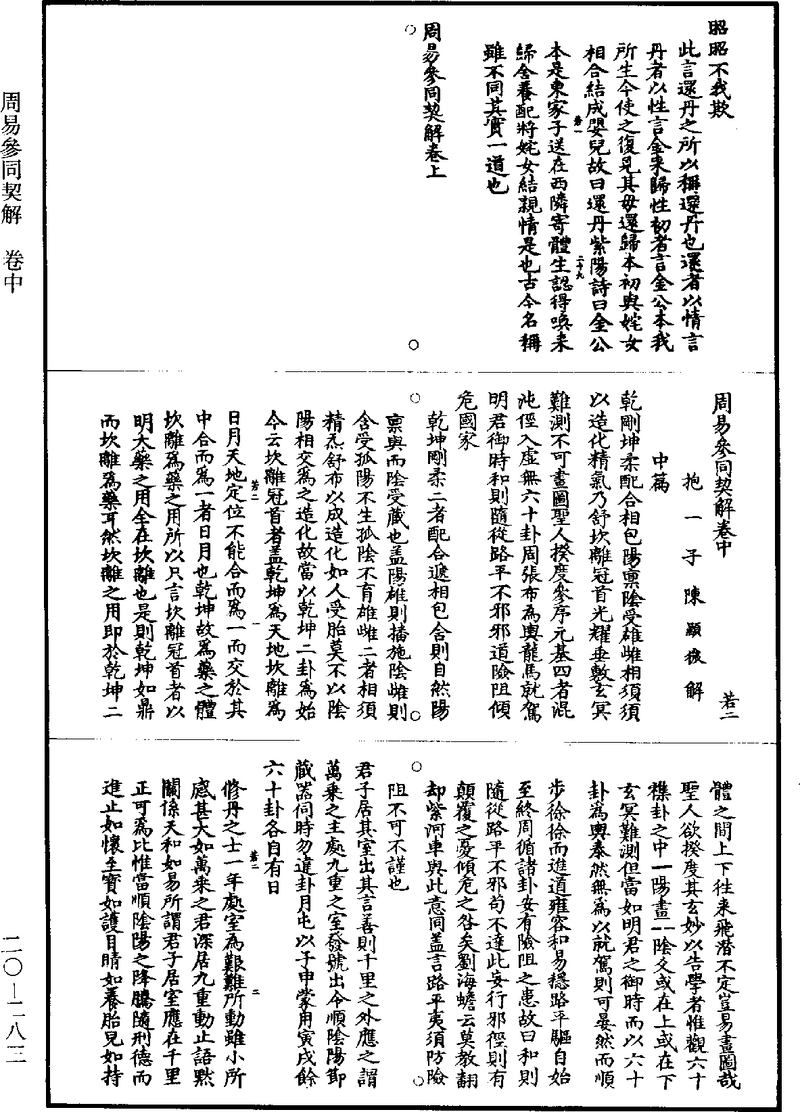 周易參同契解　卷中
二〇—二八二
昭昭不我欺
此言還丹之所以稱還丹也還者以情言
丹者以性言金來歸性初者言金公本我
所生今使之復見其母還歸本初與姹女
相合結成嬰兒故曰還丹紫陽詩曰金公
若一
二十九
本是東家子送在西隣寄體生認得喚來
歸舍養配將姹女結親情是也古今名稱
雖不同其實一道也
周易參同契解卷上
周易參同契解卷中
若二
抱一子陳顯微解
中篇
乾剛坤柔配合相包陽稟陰受雄雌相須須
以造化精氣乃舒坎離冠首光耀垂敷玄冥
難測不可畫圖聖人揆度參序元基四者混
沌徑入虛無六十卦周張布為輿龍馬就駕
明君御時和則隨從路平不邪邪道險阻傾
危國家
乾坤剛柔二者配合遞相包含則自然陽
稟與而陰受藏也蓋陽雄則播施陰雌則
含受孤陽不生孤陰不育雄雌二者相須
精炁舒布以成造化如人受胎莫不以陰
陽相交為之造化故當以乾坤二卦為始
今云坎離冠首者蓋乾坤為天地坎離為
若二
一
日月天地定位不能合而為一而交於其
中合而為一者日月也乾坤故為藥之體
坎離為藥之用所以只言坎離冠首者以
明大藥之用全在坎離也是則乾坤如鼎
而坎離為藥耳然坎離之用即於乾坤二
體之間上下往來飛潛不定豈易畫圖哉
聖人欲揆度其玄妙以告學者惟觀六十
襍卦之中一陽畫一陰爻或在上或在下
玄冥難測但當如明君之御時而以六十
卦為輿泰然無為以就駕則可晏然而順
步徐徐而進道雍容和易穩路平驅自始
至終周循諸卦安有險阻之患故曰和則
隨從路平不邪苟不達此妄行邪徑則有
顛覆之憂傾危之咎矣劉海蟾云莫教翻
却紫河車與此意同蓋言路平夷須防險
阻不可不謹也
君子居其室出其言善則千里之外應之謂
萬乘之主處九重之室發號出令順陰陽節
藏器伺時勿違卦月屯以子申蒙用寅戌餘
六十卦各自有日
若二
二
修丹之士一年處室為艱難所動雖小所
感甚大如萬乘之君深居九重動止語默
關係天和如易所謂君子居室應在千里
正可為比惟當順陰陽之降騰隨刑德而
進止如懷至寶如護目睛如養胎兒如持